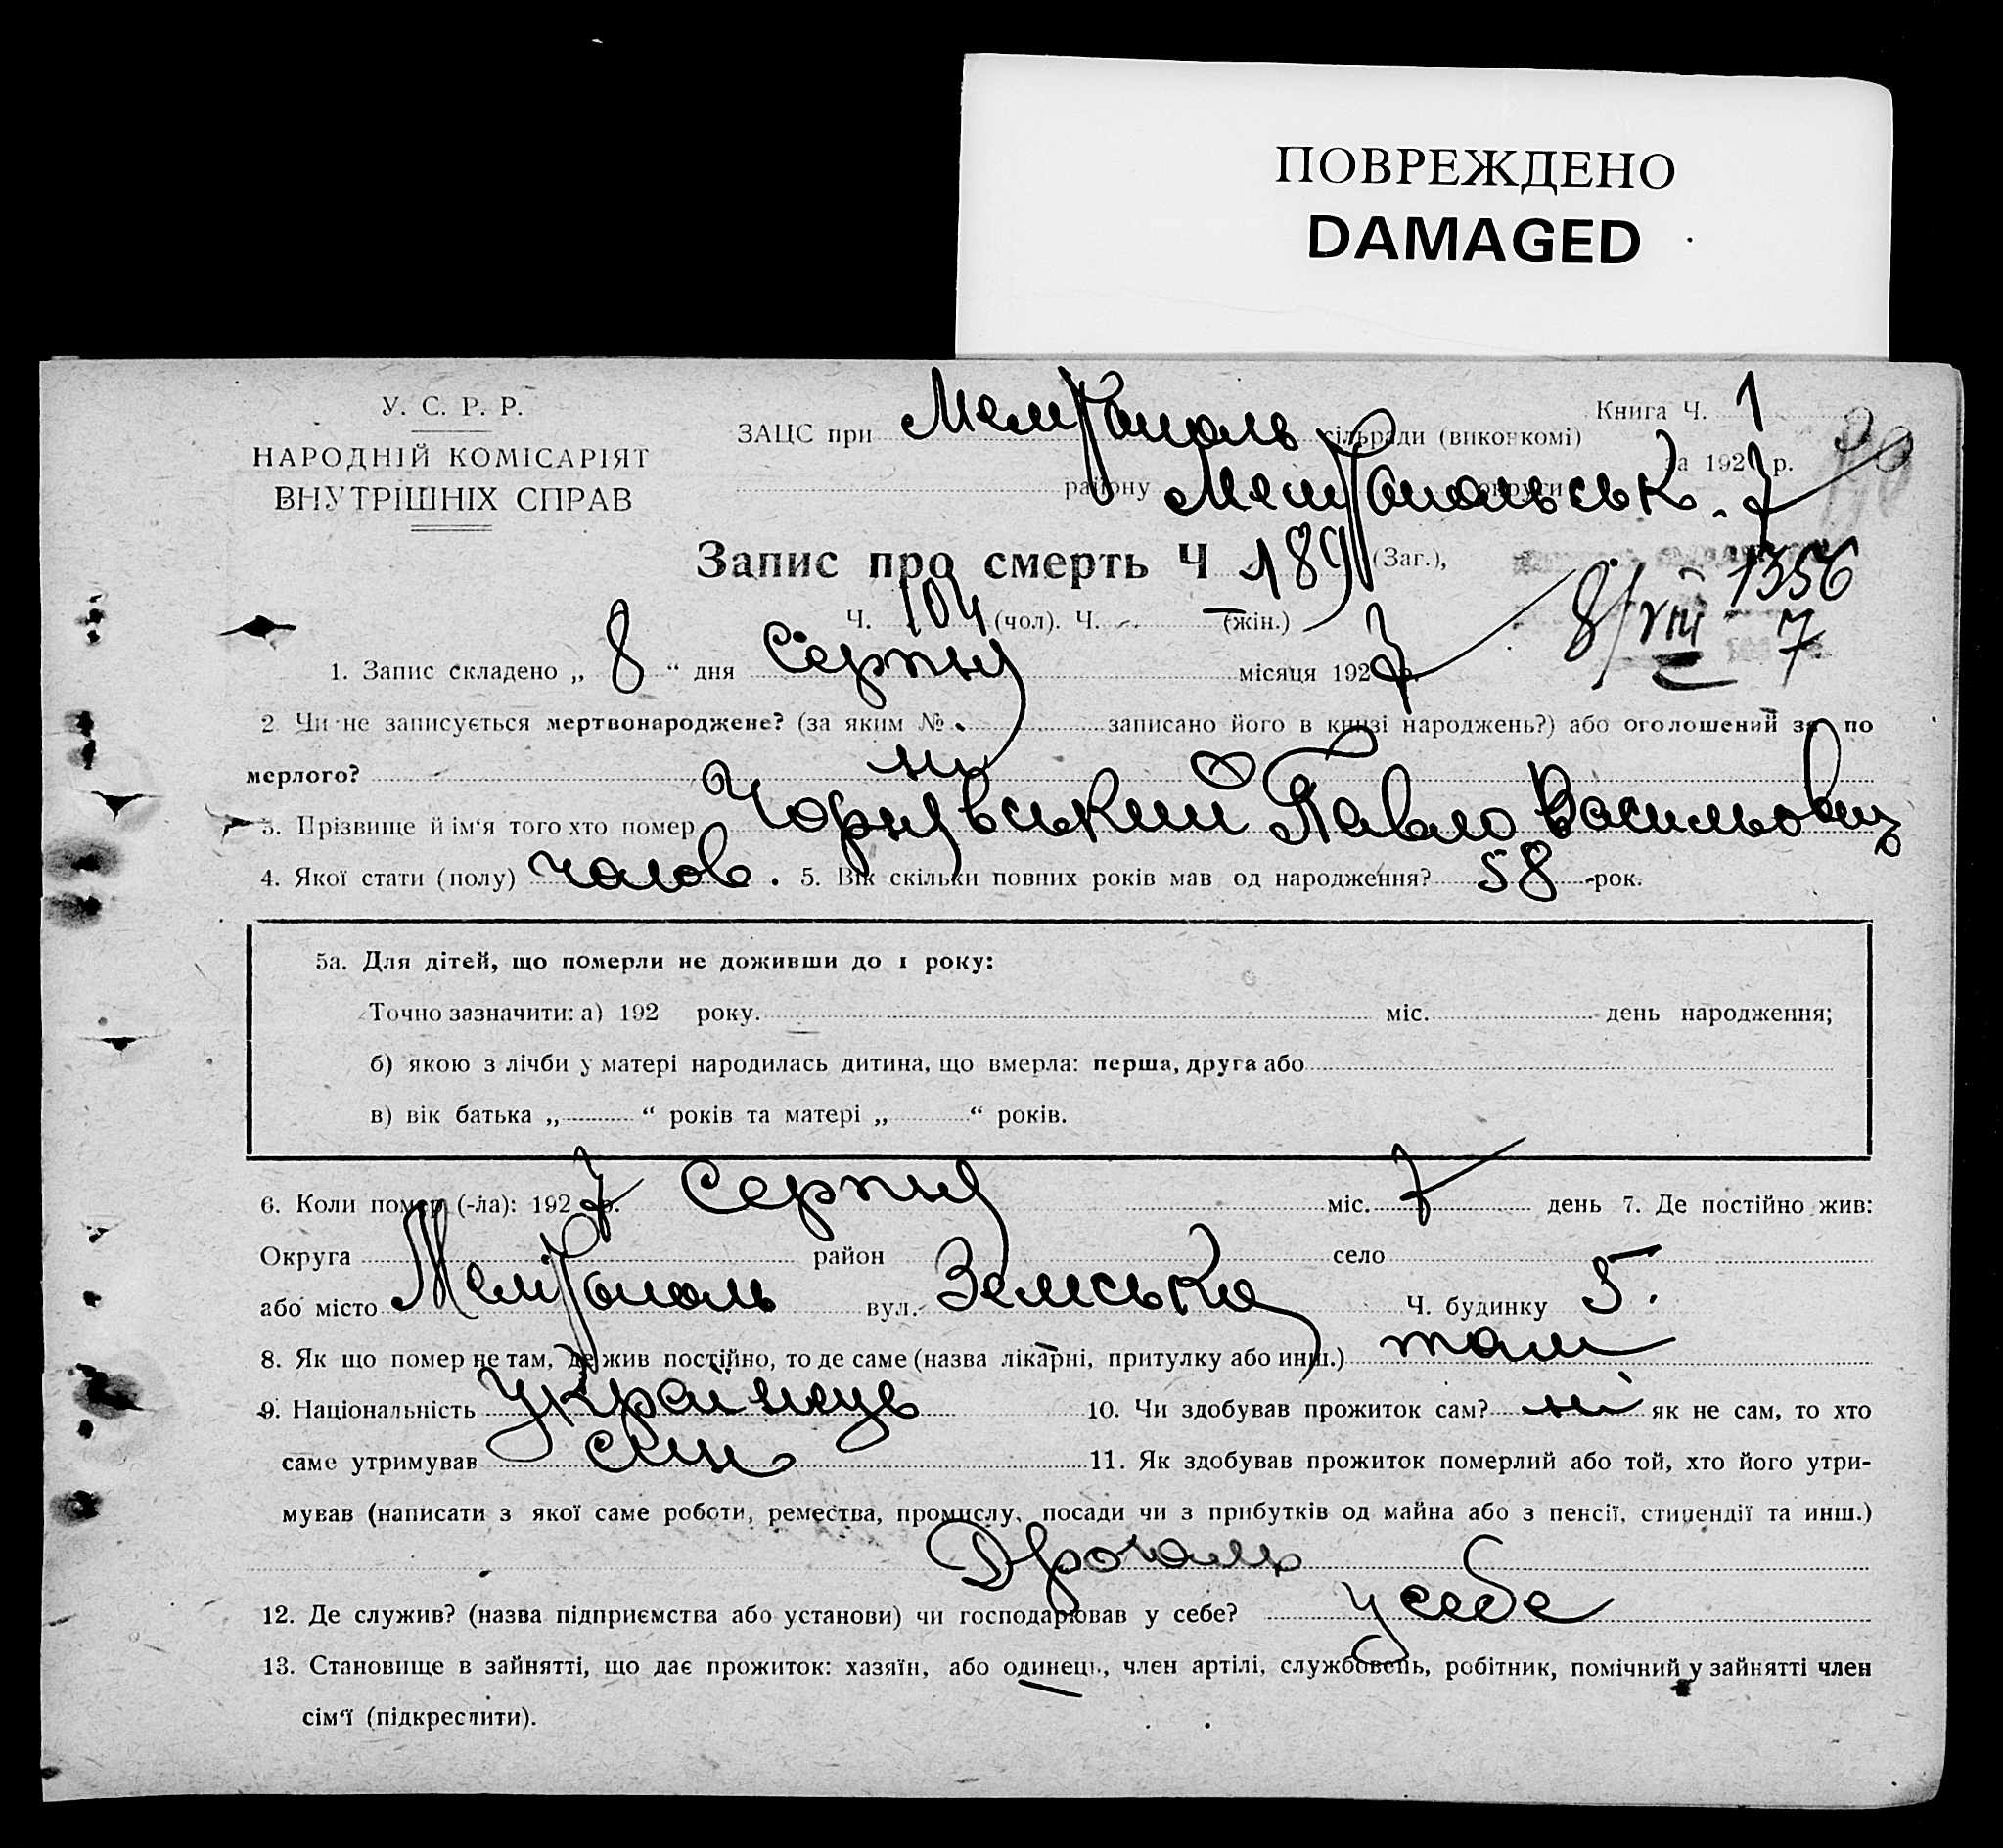 ПОВРЕЖДЕНО
DAMAGED
У. С. Р. Р.
НАРОДНІЙ КОМІСАРІЯТ
ВНУТРІШНІХ СПРАВ
Книга Ч. 1
ЗАЦС при Мелітополь сільради (виконкомі)
за 1927 р.
району Мелітопольськ. округи
Запис про смерть Ч 189 (Заг.),
1356
Ч. 104 (чол). Ч. — (жін.)
8/VIII - 7
1. Запис складено „ 8 “ дня Серпня місяця 1927 р.
2 Чи не записується мертвонароджене? (за яким № записано його в книзі народжень?) або оголошений за по
мерлого? ні
3. Прізвище й ім‘я того хто помер Чорнявський Павло Васильович
4. Якої стати (полу) чолов. 5. Вік скільки повних років мав од народження? 58 рок.
5а. Для дітей, що померли не доживши до 1 року:
Точно зазначити: а) 192 року. міс. день народження;
б) якою з лічби у матері народилась дитина, що вмерла: перша, друга або
в) вік батька „ “ років та матері „ “ років.
6. Коли помер (-ла): 1927 р. Серпня міс. 7 день 7. Де постійно жив:
Округа район село
або місто Мелітополь вул. Земська Ч. будинку 5.
8. Як що помер не там, де жив постійно, то де саме (назва лікарні, притулку або инш.) там
9. Національність Українець 10. Чи здобував прожиток сам? ні як не сам, то хто
саме утримував син 11. Як здобував прожиток померлий або той, хто його утри-
мував (написати з якої саме роботи, ремества, промислу, посади чи з прибутків од майна або з пенсії, стипендії та инш.)
Дрогаль
12. Де служив? (назва підприємства або установи) чи господарював у себе? у себе
13. Становище в зайнятті, що дає прожиток: хазяїн, або одинець, член артілі, службовець, робітник, помічний у зайнятті член
сім‘ї (підкреслити).